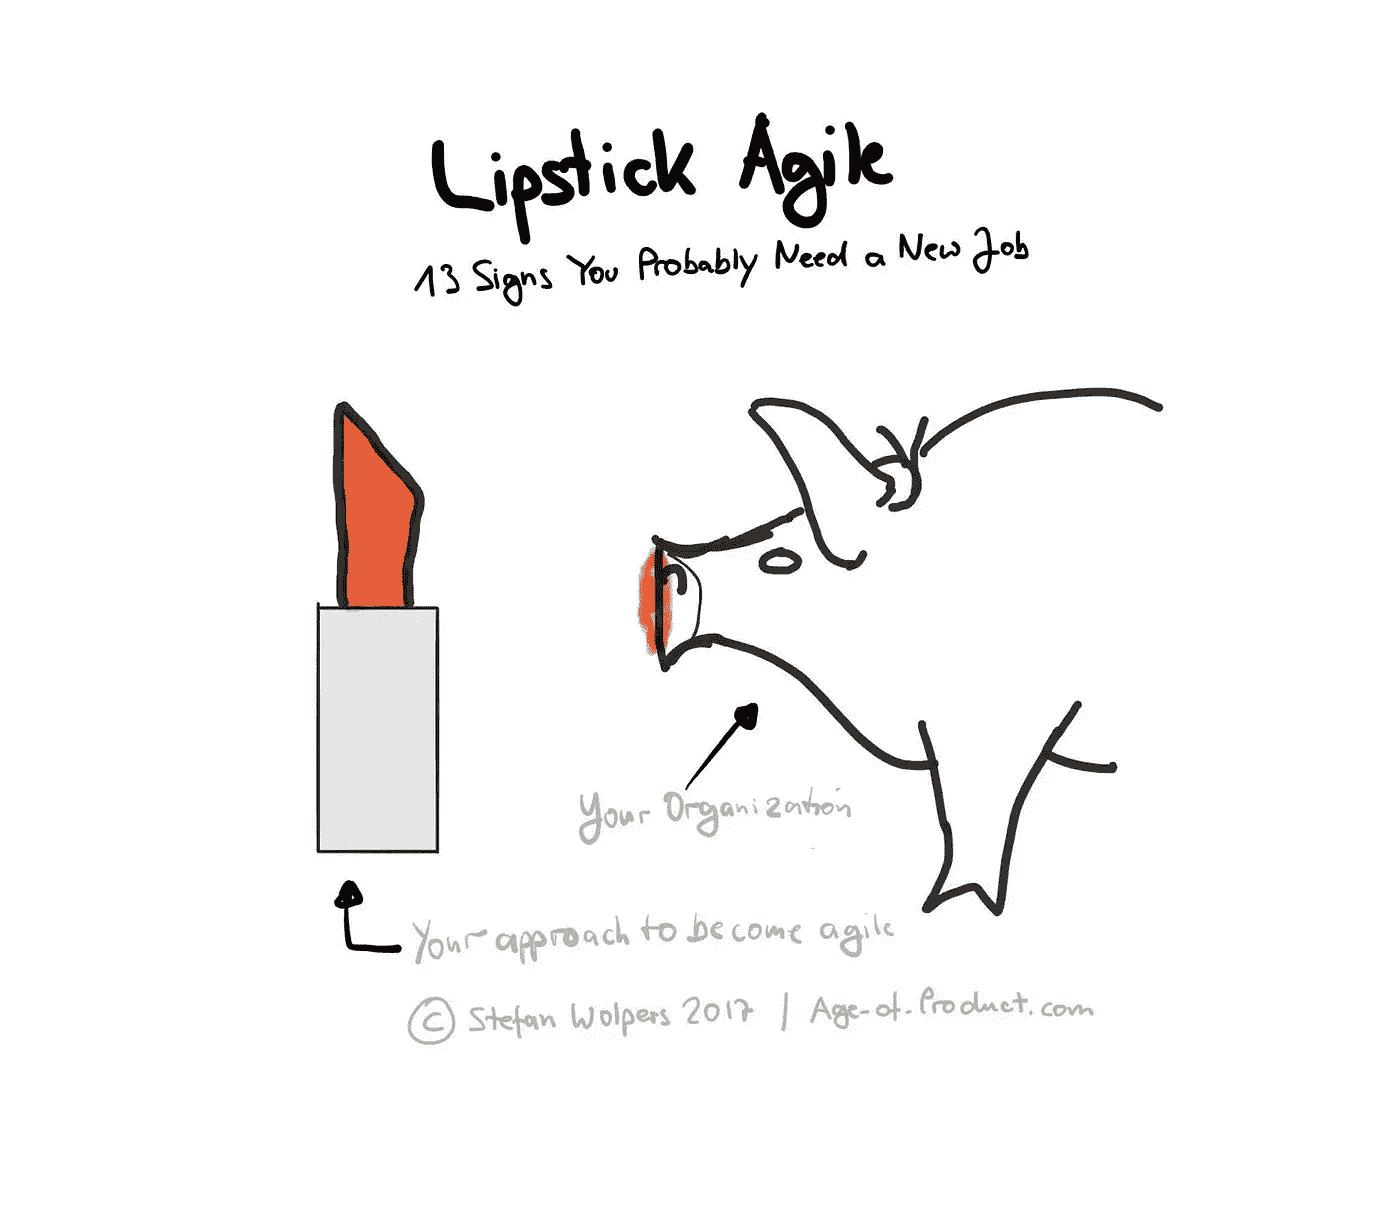 Lipstick Agile
13 Signs You Probably Need a New Job
Your Organization
Your approach to become agile
© Stefan Wolpers 2017 | Age-of-Product.com